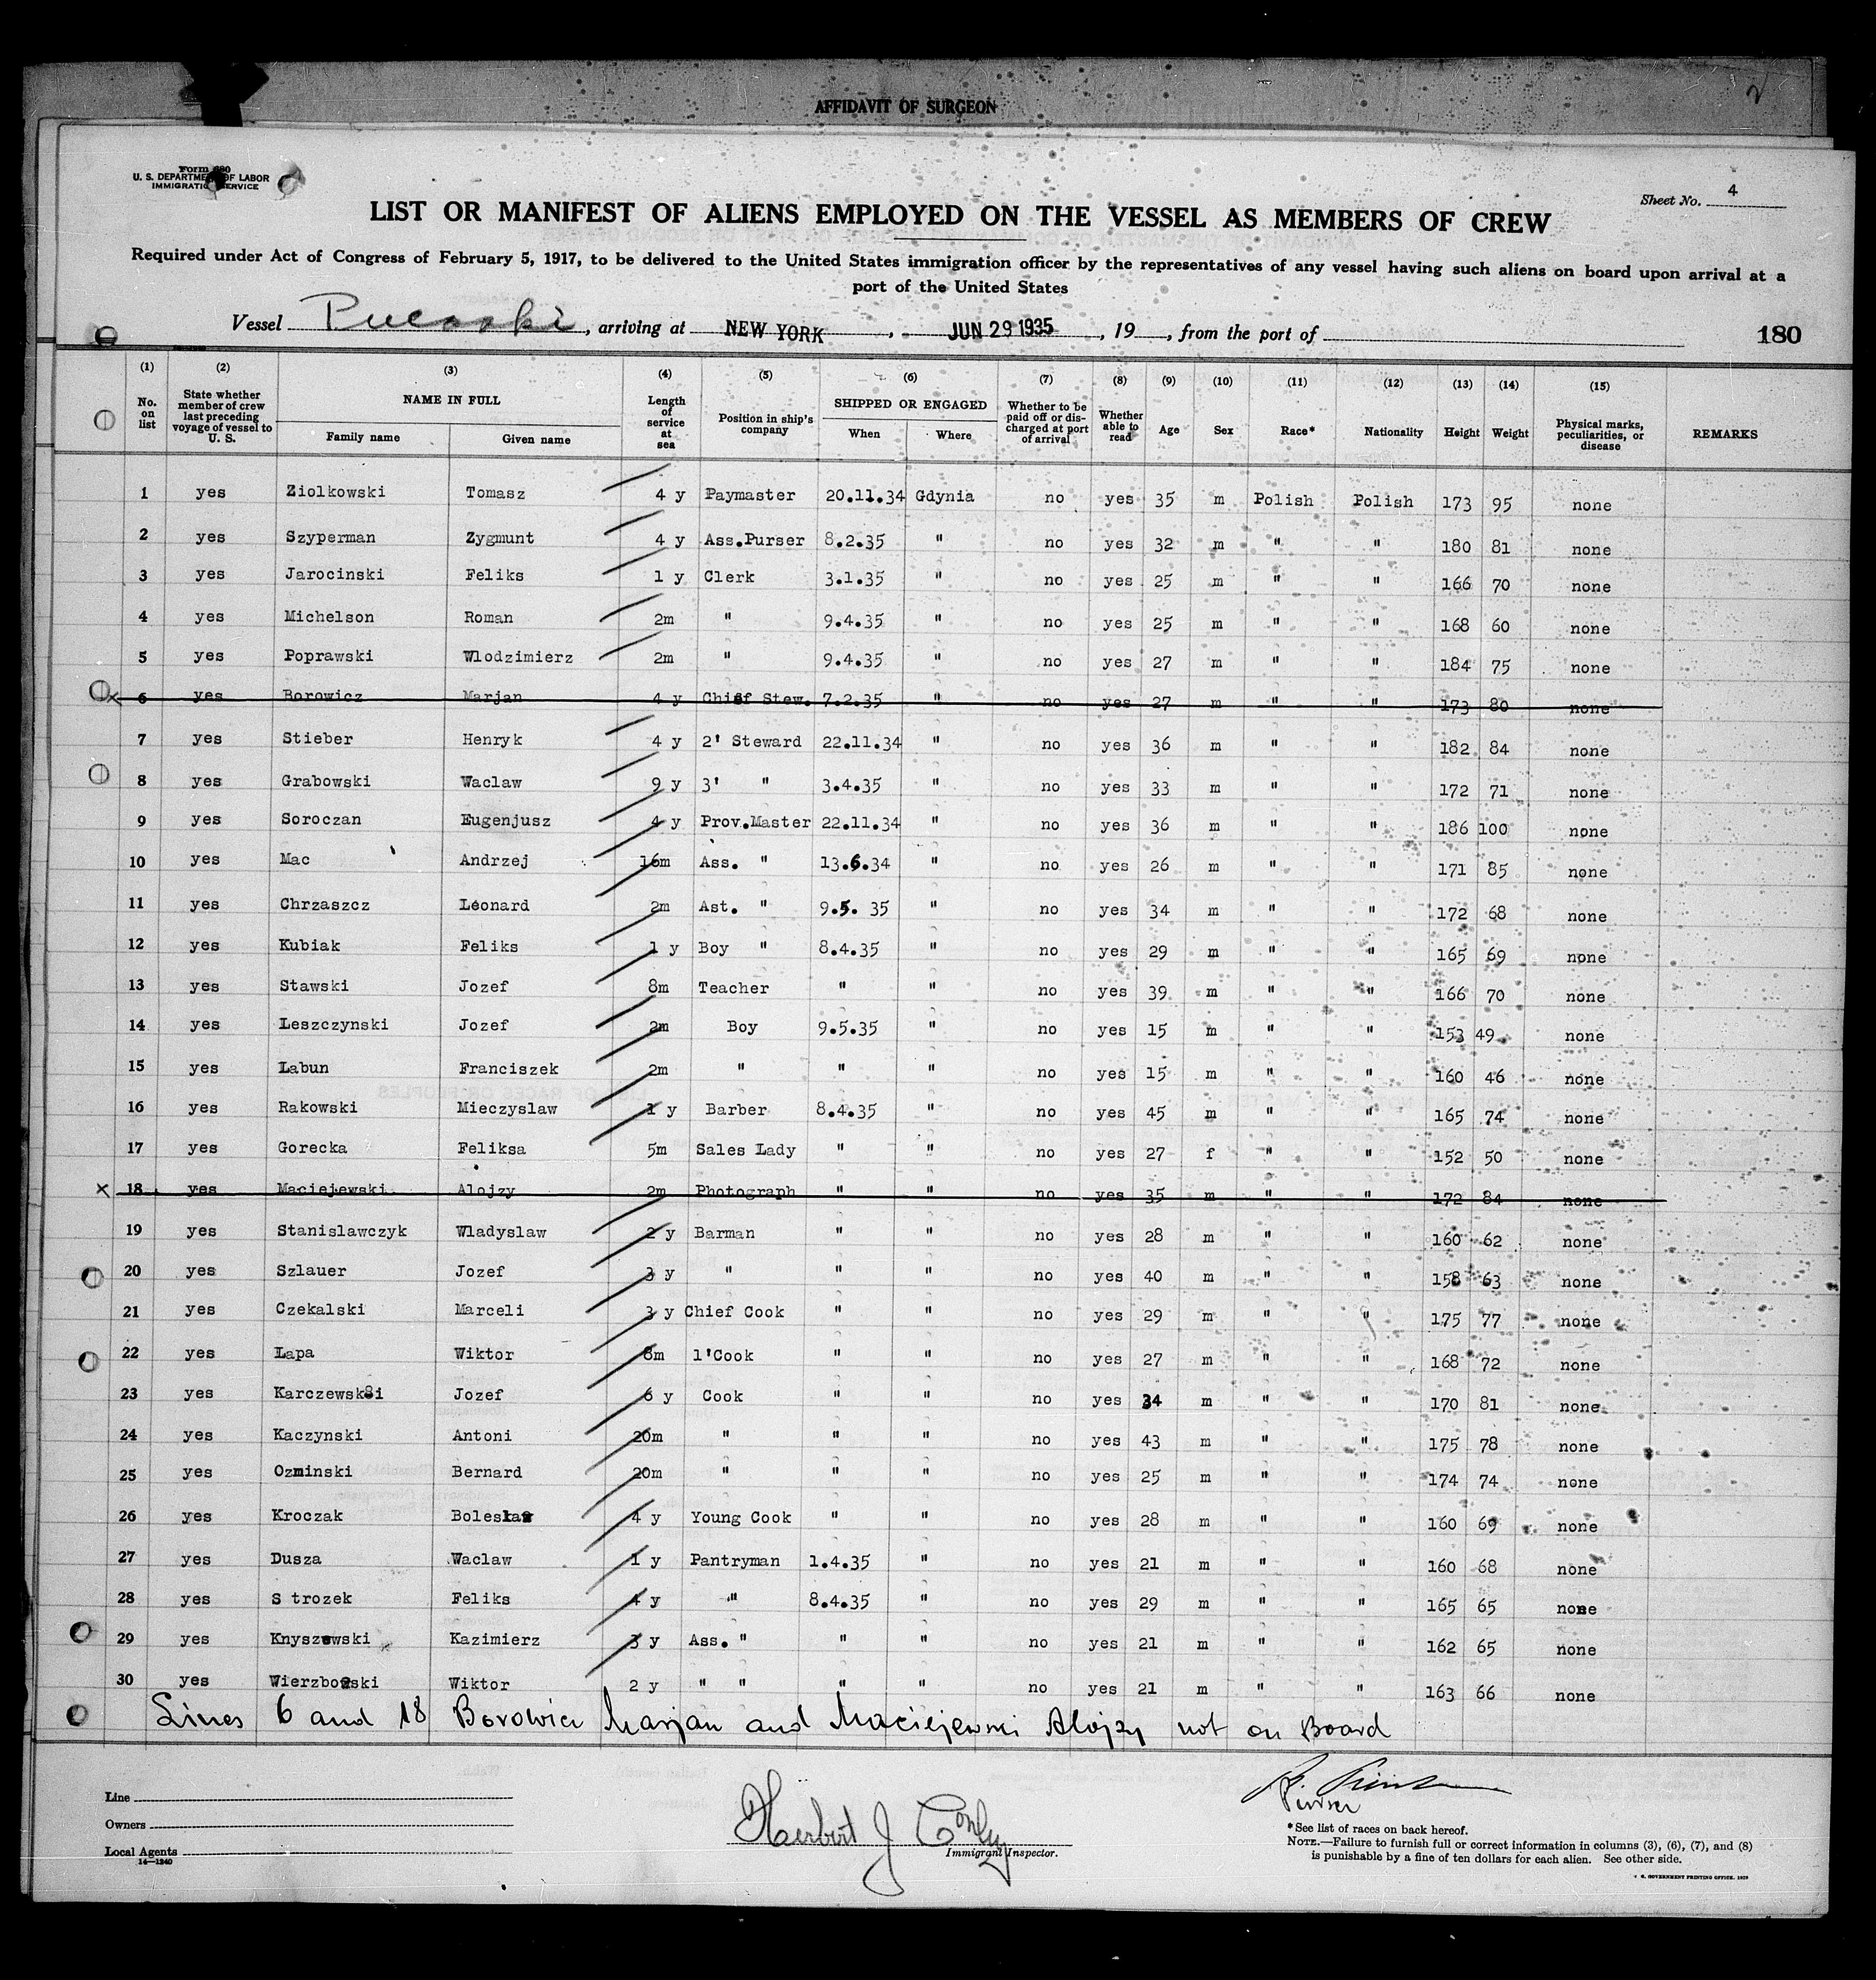 AFFIDAVIT OF SURGEON
2
Form 680
U. S. DEPARTMENT OF LABOR
IMMIGRATION SERVICE
Sheet No. 4
LIST OR MANIFEST OF ALIENS EMPLOYED ON THE VESSEL AS MEMBERS OF CREW
Required under Act of Congress of February 5, 1917, to be delivered to the United States immigration officer by the representatives of any vessel having such aliens on board upon arrival at a
port of the United States
Vessel Pulaski, arriving at NEW YORK, JUN 29 1935, 19, from the port of
180
(1) (2) (3) (4) (5) (6) (7) (8) (9) (10) (11) (12) (13) (14) (15)
No. on list State whether member of crew last preceding voyage of vessel to U. S. NAME IN FULL Family name Given name Length of service at sea Position in ship's company SHIPPED OR ENGAGED When Where Whether to be paid off or discharged at port of arrival Whether able to read Age Sex Race* Nationality Height Weight Physical marks, peculiarities, or disease REMARKS
1 yes Ziolkowski Tomasz 4 y Paymaster 20.11.34 Gdynia no yes 35 m Polish Polish 173 95 none
2 yes Szyperman Zygmunt 4 y Ass.Purser 8.2.35 " no yes 32 m " " 180 81 none
3 yes Jarocinski Feliks 1 y Clerk 3.1.35 " no yes 25 m " " 166 70 none
4 yes Michelson Roman 2m " 9.4.35 " no yes 25 m " " 168 60 none
5 yes Poprawski Wlodzimierz 2m " 9.4.35 " no yes 27 m " " 184 75 none
x 6 yes Borowicz Marjan 4 y Chief Stew. 7.2.35 " no yes 27 m " " 173 80 none
7 yes Stieber Henryk 4 y 2' Steward 22.11.34 " no yes 36 m " " 182 84 none
8 yes Grabowski Waclaw 9 y 3' " 3.4.35 " no yes 33 m " " 172 71 none
9 yes Soroczan Eugenjusz 4 y Prov.Master 22.11.34 " no yes 36 m " " 186 100 none
10 yes Mac Andrzej 16m Ass. " 13.6.34 " no yes 26 m " " 171 85 none
11 yes Chrzaszcz Leonard 2m Ast. " 9.5. 35 " no yes 34 m " " 172 68 none
12 yes Kubiak Feliks 1 y Boy " 8.4.35 " no yes 29 m " " 165 69 none
13 yes Stawski Jozef 8m Teacher " " no yes 39 m " " 166 70 none
14 yes Leszczynski Jozef 2m Boy 9.5.35 " no yes 15 m " " 153 49 none
15 yes Labun Franciszek 2m " " " no yes 15 m " " 160 46 none
16 yes Rakowski Mieczyslaw 1 y Barber 8.4.35 " no yes 45 m " " 165 74 none
17 yes Gorecka Feliksa 5m Sales Lady " " no yes 27 f " " 152 50 none
x 18 yes Maciejewski Alojzy 2m Photograph " " no yes 35 m " " 172 84 none
19 yes Stanislawczyk Wladyslaw 2 y Barman " " no yes 28 m " " 160 62 none
20 yes Szlauer Jozef 3 y " " " no yes 40 m " " 158 63 none
21 yes Czekalski Marceli 3 y Chief Cook " " no yes 29 m " " 175 77 none
22 yes Lapa Wiktor 8m 1'Cook " " no yes 27 m " " 168 72 none
23 yes Karczewski Jozef 6 y Cook " " no yes 34 m " " 170 81 none
24 yes Kaczynski Antoni 20m " " " no yes 43 m " " 175 78 none
25 yes Ozminski Bernard 20m " " " no yes 25 m " " 174 74 none
26 yes Kroczak Boleslaw 4 y Young Cook " " no yes 28 m " " 160 69 none
27 yes Dusza Waclaw 1 y Pantryman 1.4.35 " no yes 21 m " " 160 68 none
28 yes S trozek Feliks 4 y " 8.4.35 " no yes 29 m " " 165 65 none
29 yes Knyszewski Kazimierz 3 y Ass. " " " no yes 21 m " " 162 65 none
30 yes Wierzbowski Wiktor 2 y " " " " no yes 21 m " " 163 66 none
Lines 6 and 18 Borowicz Marjan and Maciejewski Alojzy not on Board
Line
Owners
Local Agents
14—1240
Herbert J Conley
Immigrant Inspector.
Purser
*See list of races on back hereof.
NOTE.—Failure to furnish full or correct information in columns (3), (6), (7), and (8)
is punishable by a fine of ten dollars for each alien. See other side.
U. S. GOVERNMENT PRINTING OFFICE. 1929